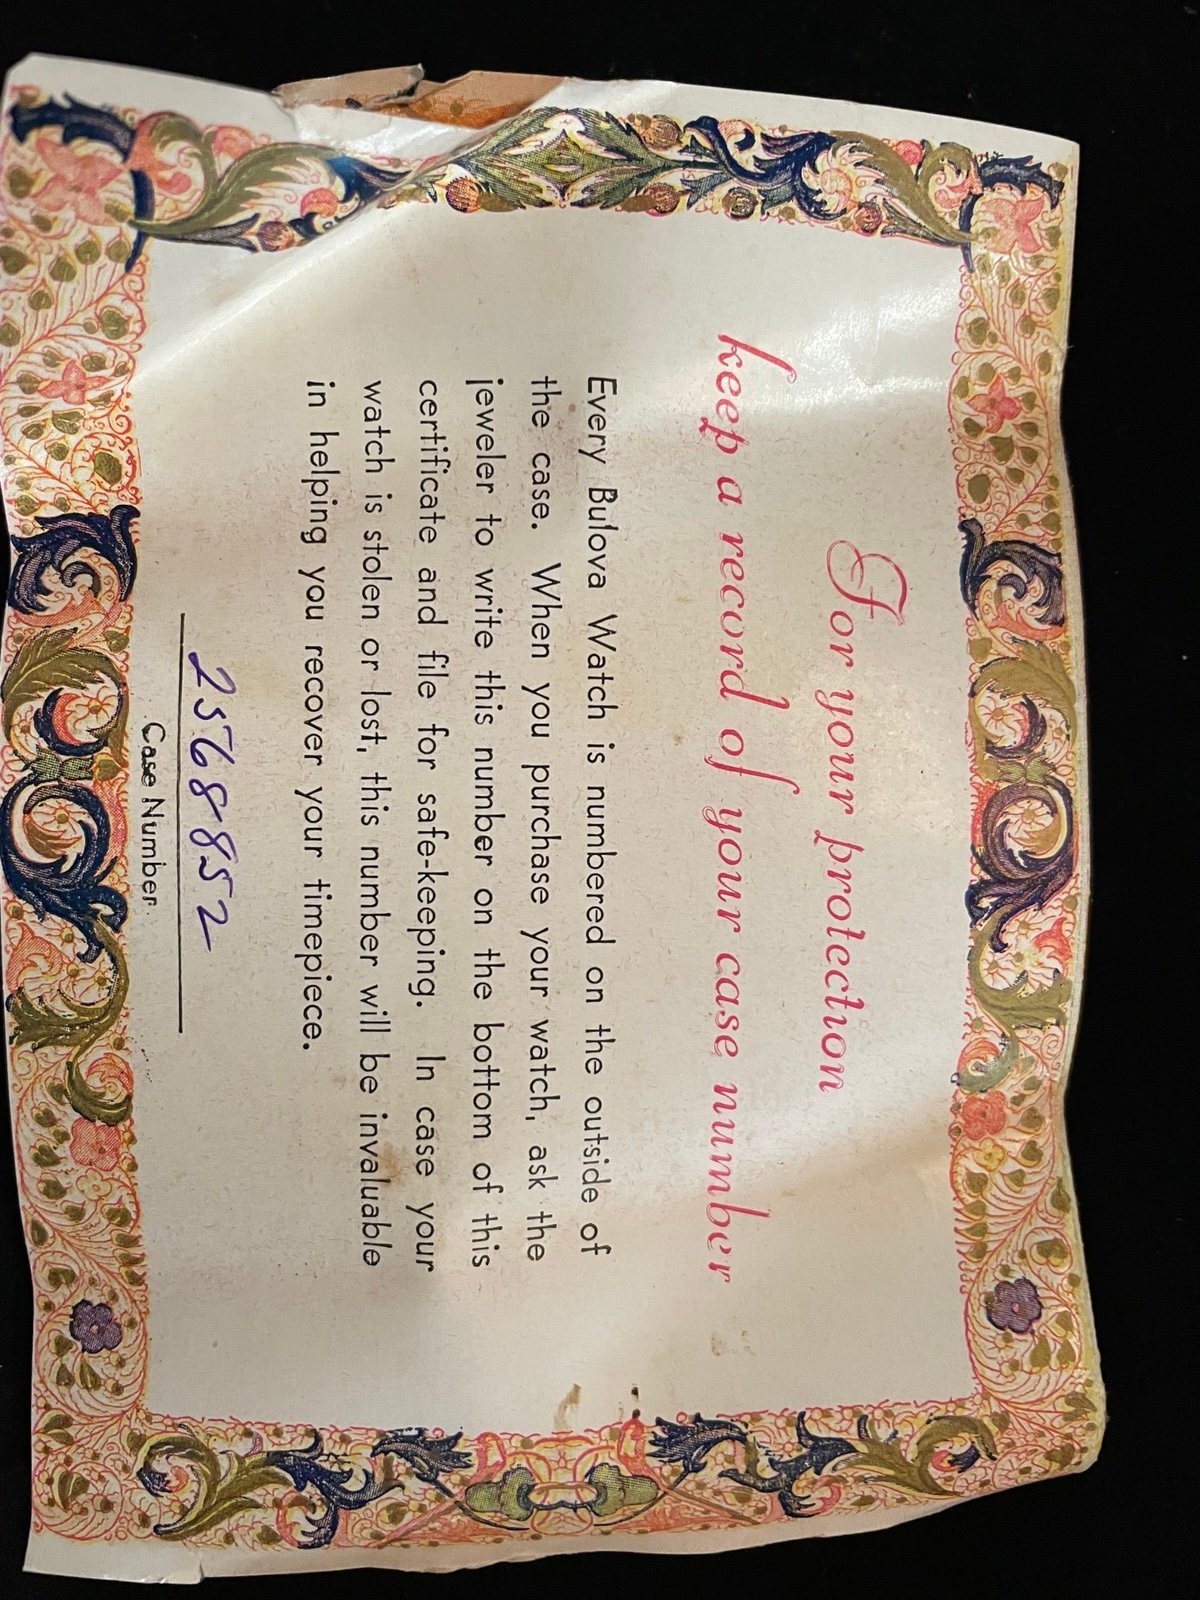 For your protection
keep a record of your case number
Every Bulova Watch is numbered on the outside of
the case. When you purchase your watch, ask the
jeweler to write this number on the bottom of this
certificate and file for safe-keeping. In case your
watch is stolen or lost, this number will be invaluable
in helping you recover your timepiece.
2568852
Case Number